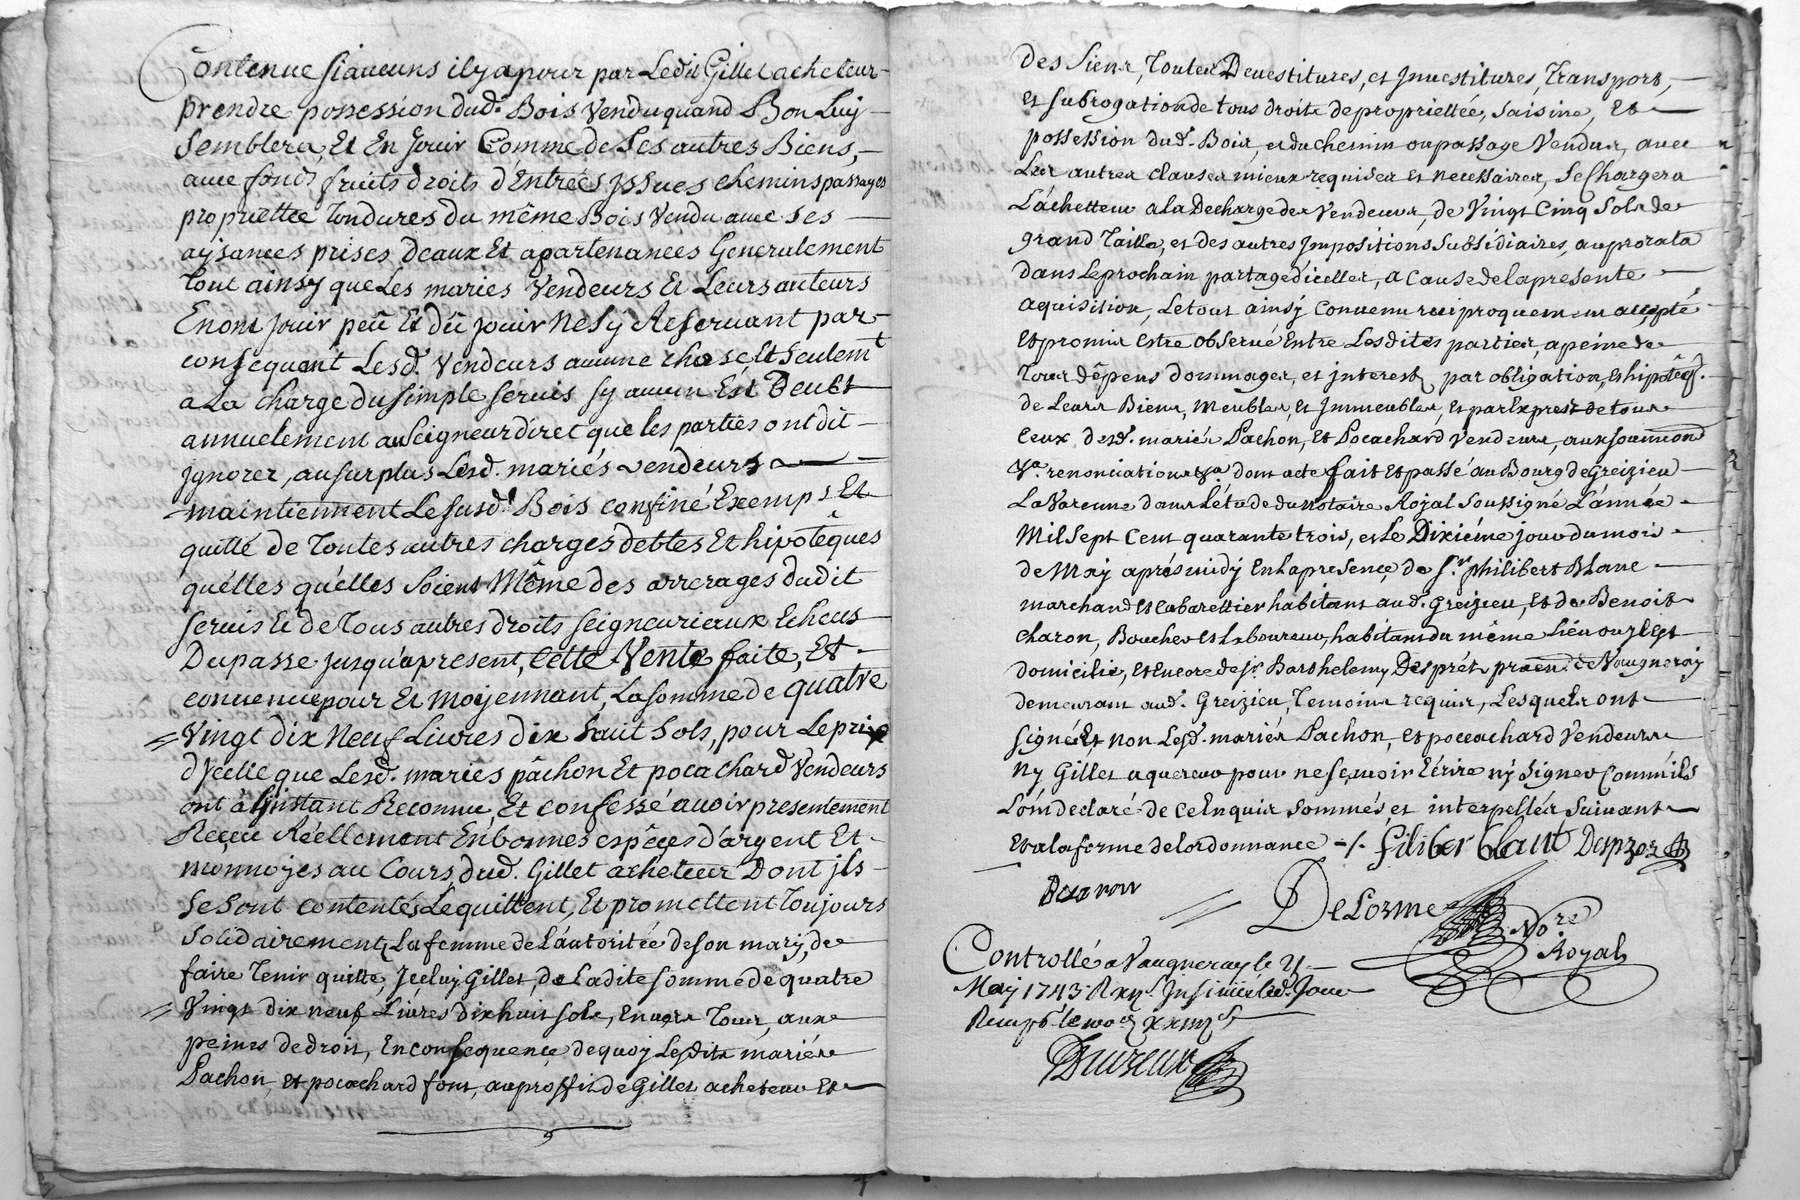 Contenue siaucuns ilya pour par Ledit Gillet acheteur
prendre possession dud. Bois Vendu quand Bon Luy
Semblera, Et En Jouir Comme de Ses autres Biens,
avec fonds fruits droits d'Entrées jssues chemins passages
propriettée Tondures du même Bois Vendu avec ses
aysances prises deaux Et apartenances Generalement
Tout ainsy que Lés mariés Vendeurs Et Leurs auteurs
Enont Jouir peû Et dû jouir Nesy Reservant par
consequent Lesd. Vendeurs aucune chose Et Seulemt
a La charge du simple servis sy aucun Est Deubt
annuelement au Seigneur direct que les parties ont dit
jgnorer, au surplus Lesd. mariés vendeurs
maintiennent Le susd. Bois confiné Exempt Et
quitte de Toutes autres charges debtes Et hipotêques
quélles quélles Soient Même des arrerages dudit
servis Et de Tous autres droits seigneuriaux Echeus
Du passe jusqu'apresent, Cette Vente faite, Et
convenue pour Et moyennant, La somme de quatre
Vingt dix Neuf Livres dix huit Sols, pour Le prix
dycelle que Lesd. maries pâchon Et pocachard Vendeurs
ont à L'jnstant Reconnu, Et confessé avoir presentement
Reçeu Réellement En bonnes espêces d'argent Et
monnoyes au Cours dud. Gillet acheteur Dont jls
Se sont contentés Le quittent, Et promettent Toujours
Solidairement La femme de L'autoritée de son mary, de
faire Tenir quitte, jceluy Gillet, de La dite somme de quatre
Vingt dix neuf Livres dix huit sols, Envers Tous, aux
peines de droit, En consequence de quoy Lesdits mariés
Pachon, et pocachard font, au proffit de Gillet acheteur Et
des Siens, Toutes Devestitures, et jnvestitures, Transport,
Et subrogation de tous droits de propriettée, saisine, Et
possession dud. Bois, et du chemin ou passage Vendus, avec
Les autres clauses mieux requises et necessaires, se Chargera
L'achetteur a la Decharge des Vendeurs, de Vingt Cinq Sols de
grand Taille, et des autres jmpositions Subsidiaires, au prorata
dans Le prochain partage d'icelles, a Cause de la presente
aquisition, Le tout ainsy Convenu reciproquement accepté
Et promis Estre Observé Entre Lesdites parties, a peine de
Tous dêpens dommages, et jnterest par obligation, et hipotêq.
de Leurs Biens, meubles et jmmeubles, Et par Exprest de tous
Ceux desd. mariés Pachon, et Pocachard Vendeurs, aux soumions
Ya. renonciations Ya. dont acte fait Et passé au Bourg de Greizieu
La Varenne dans L'étude du notaire Royal Soussigné L'année
Mil Sept Cent quarante trois, et Le Dixiéme jour du mois
de May aprés midy En la presence de Sr. philibert Blanc
marchand Et Cabarettier habitant aud. Greizieu, Et de Benoit
Charon, Boucher Et Laboureur, habitant du même Lieu ou jl Est
domicilié, Et Encore de Sr. Barthelemy Desprét praen de Vaugneray
demeurant aud. Greizieu, Temoins requis, Lesquels ont
signés Et non Lesd. mariés Pachon, et pocachard Vendeurs
Ny Gillet aquereur pour ne sçavoir Ecrire ny signer Comm'ils
L'ont declaré de ce Enquis sommés et interpellés suivant
Et a la forme de lordonnance -/- filiber blant Dupres
Decharon
DeLorme No.re
Royal
Controllé a Vaugneray le 21
May 1743 Rxy. Insinué led. Jour
Reçu
Dureux